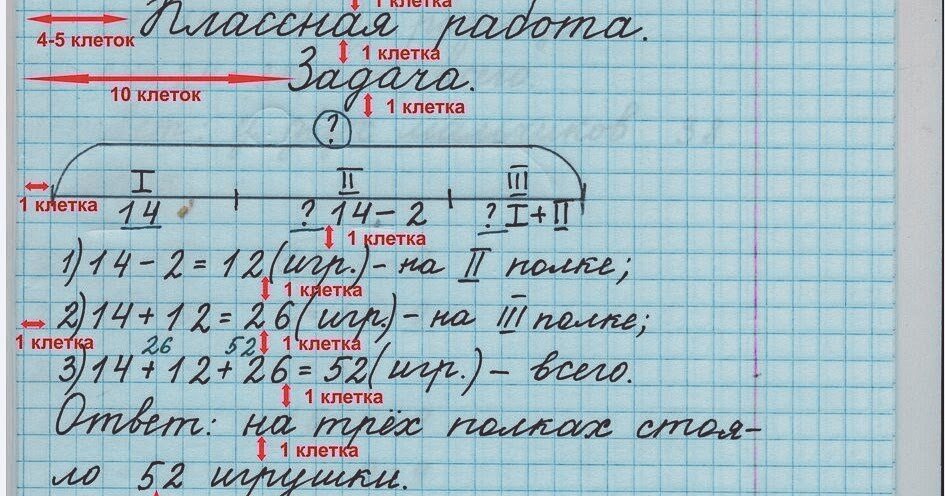 1 клетка
4-5 клеток Классная работа.
1 клетка
10 клеток Задача.
1 клетка
?
I II III
1 клетка 14 ? 14 - 2 ? I + II
1 клетка
1) 14 - 2 = 12 (игр.) - на II полке;
1 клетка
2) 14 + 12 = 26 (игр.) - на III полке;
1 клетка 1 клетка
26 52
3) 14 + 12 + 26 = 52 (игр.) - всего.
1 клетка
Ответ: на трёх полках стоя-
1 клетка
ло 52 игрушки.